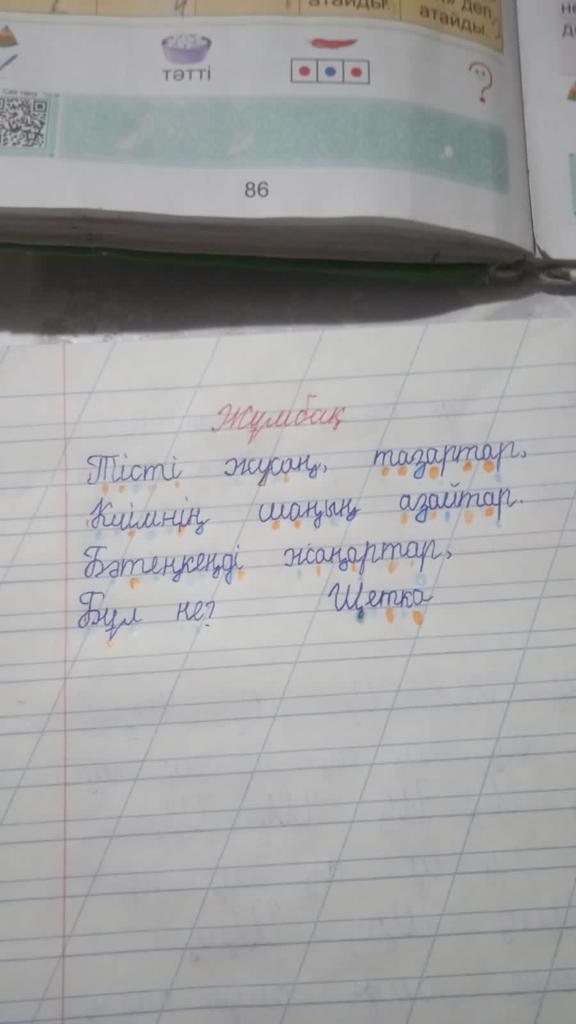 атайды.
деп
атайды.
тәтті
86
Жұмбақ
Тісті жусаң, тазартар,
Киімнің шаңың азайтар.
Бәтеңкеңді жаңартар,
Бұл не? Щетка